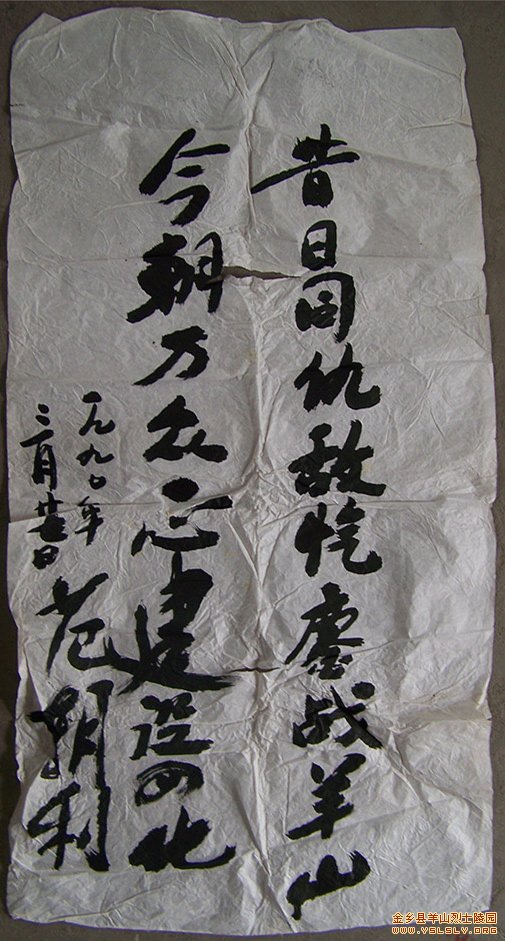 昔日同仇敌忾鏖战羊山
今朝万众一心建设四化
一九九〇年
三月廿日
范朝利
金乡县羊山烈士陵园
WWW.YSLSLY.ORG